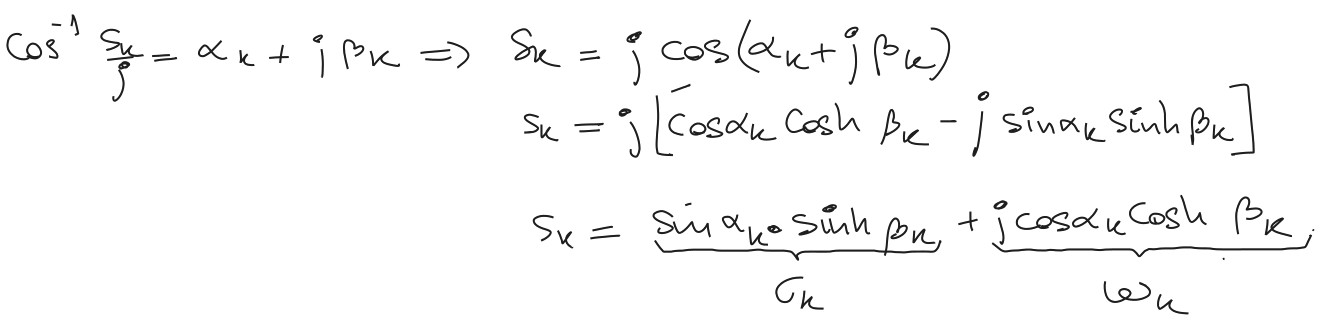 cos⁻¹ sₖ/j = αₖ + jβₖ ⇒ Sₖ = j cos(αₖ + jβₖ)
sₖ = j[cosαₖ cosh βₖ - j sinαₖ sinh βₖ]
Sₖ = sin αₖ · sinh βₖ + j cosαₖ cosh βₖ
σₖ ωₖ